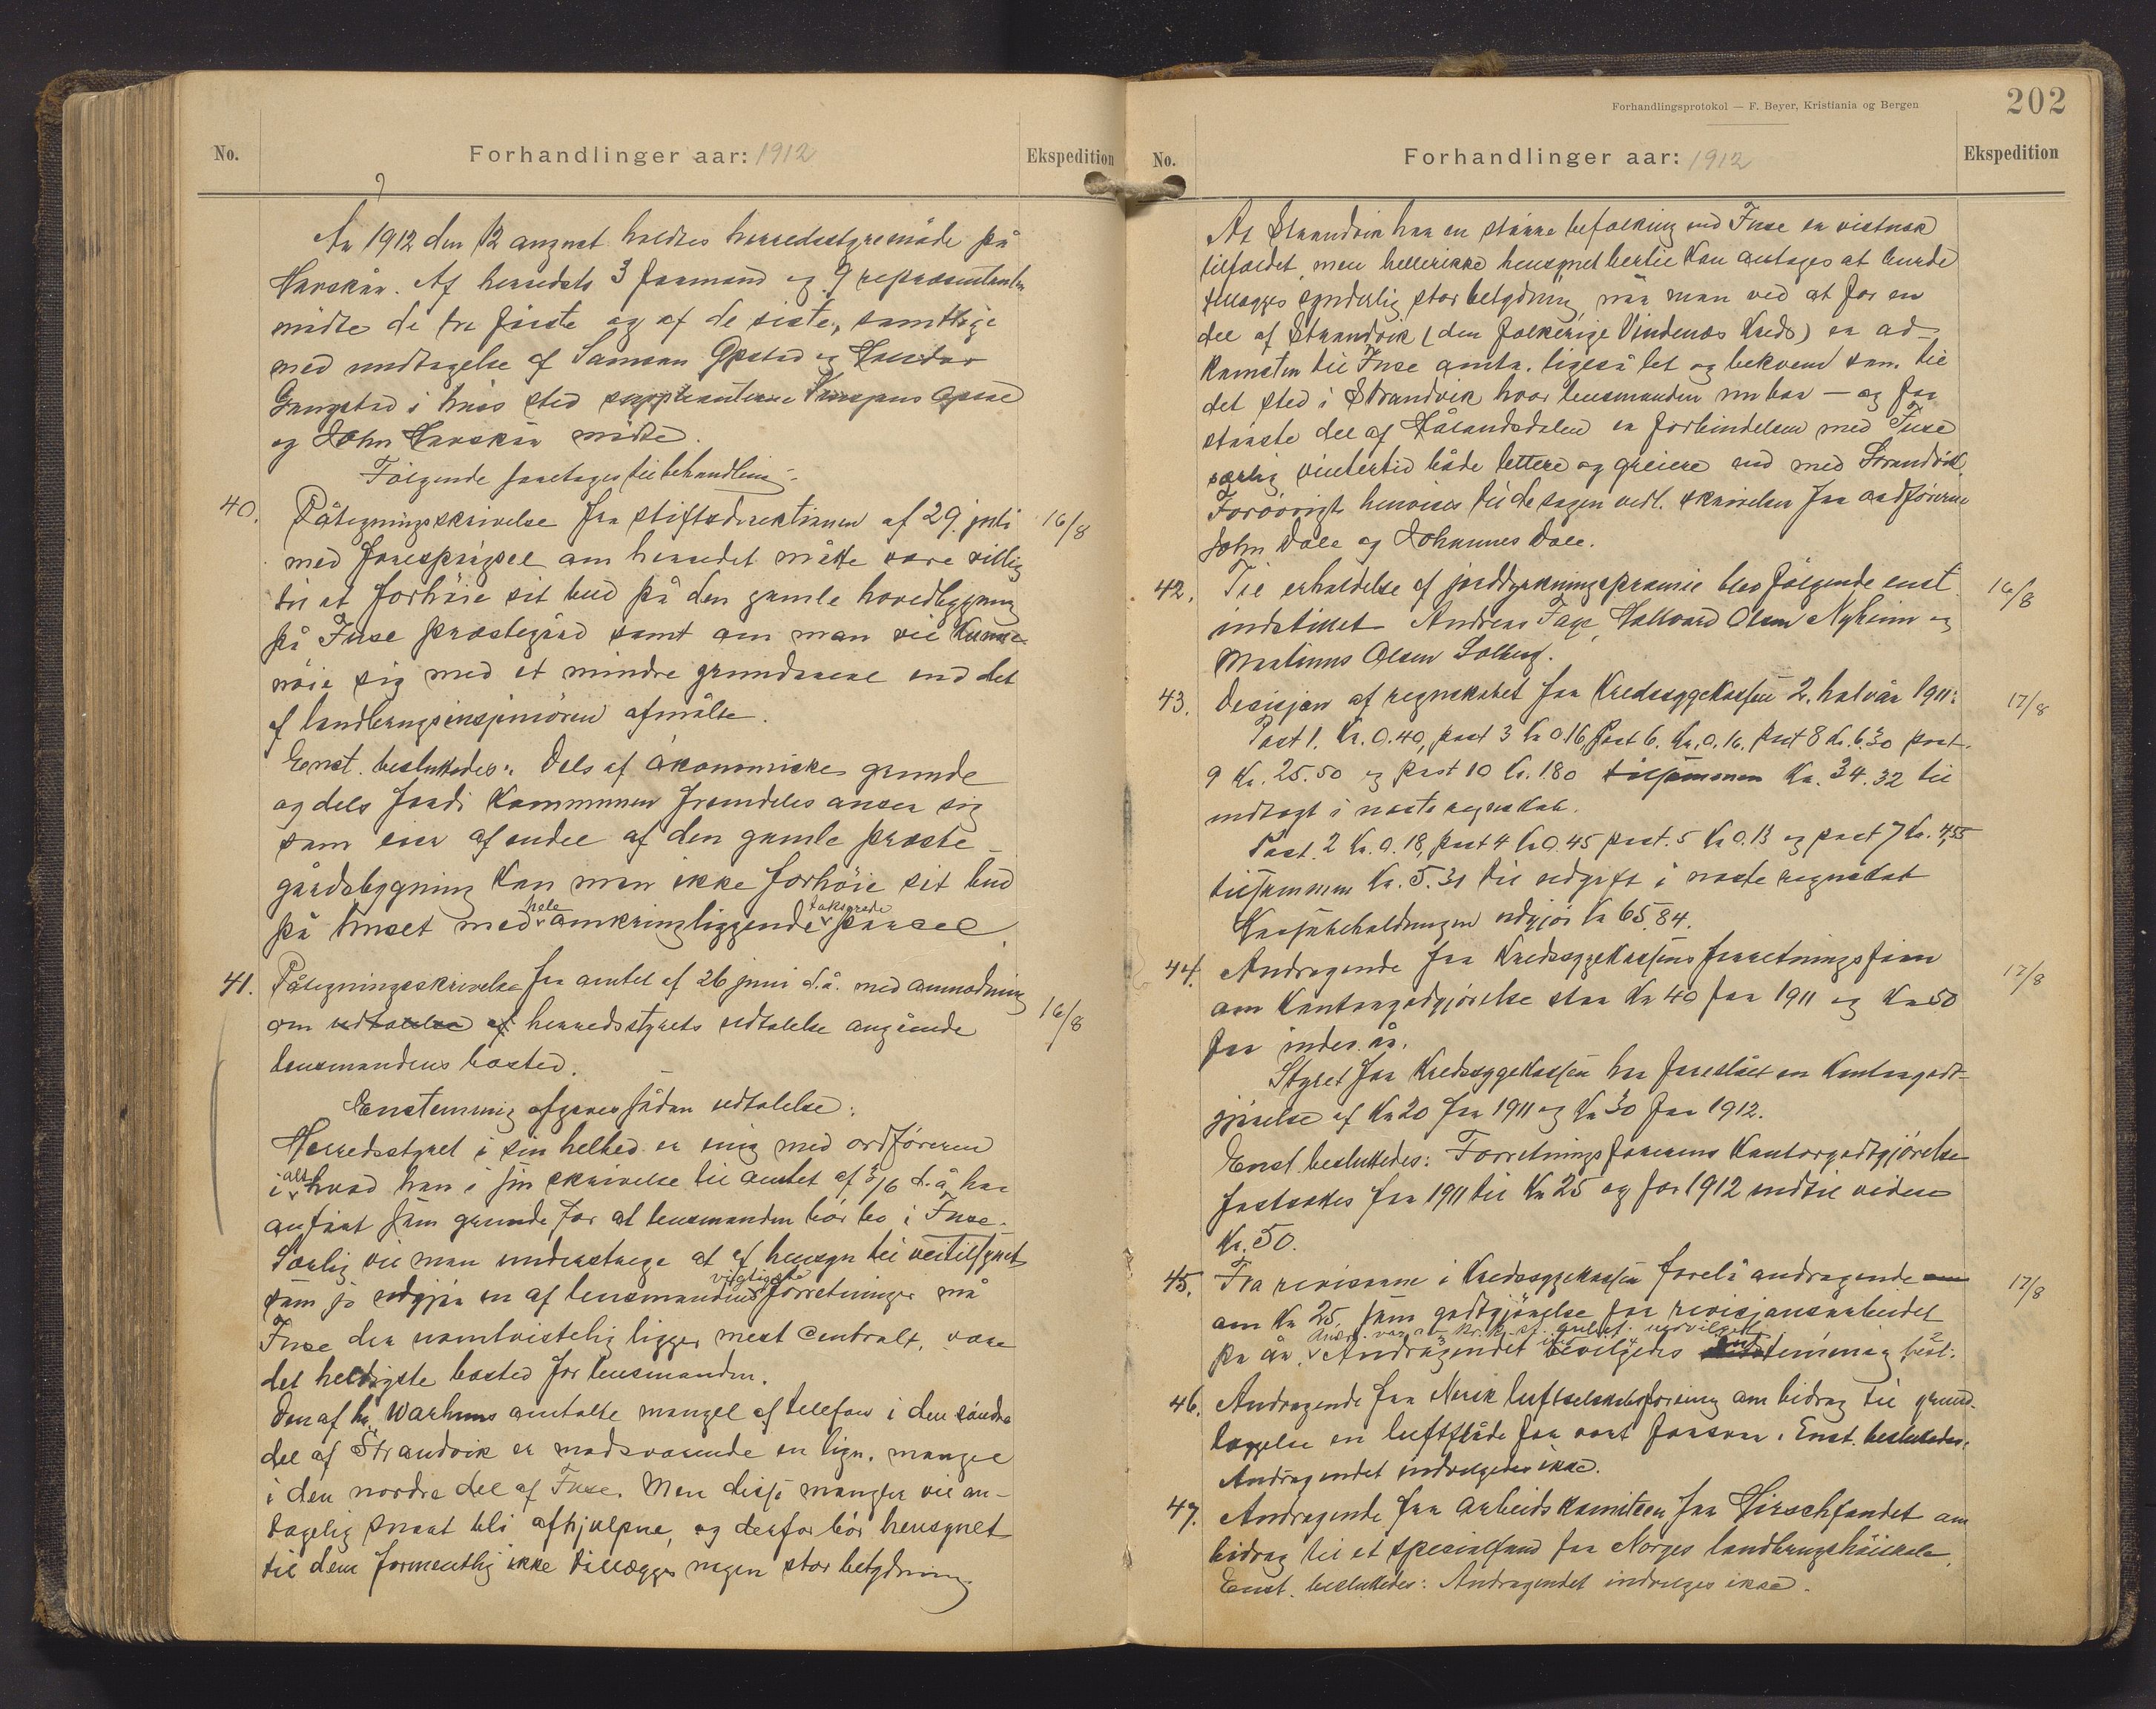 No.
Forhandlinger aar: 1912
Ekspedition
År 1912 den 12 august holdtes herredsstyremöde på
Havskår. Af herredets 3 formænd og 9 repræsentanter
mödte de tre förste og af de siste, samtlige
med undtagelse af Samson Opstad og Haldor
Gangstad i hvis sted suppleanterne Mangnus
og John Havskår mödte.
Fölgende foretages til behandling:
40. Påtegningsskrivelse fra stiftsdirektionen af 29. juli 16/8
med forespörgsel om herredet måtte være villig
til at forhöie sit bud på den gamle hovedbygning
på Fuse præstegård samt om man vil kunne
nöie sig med et mindre grundareal end det
af landbrugsingeniören afmålte.
Enst. besluttedes: Dels af ökonomiske grunde
og dels fordi kommunen fremdeles anser sig
som eier af endel af den gamle præste-
gårdsbygning kan man ikke forhöie sit bud
på huset med hele omkringliggende takserede parsel.
41. Påtegningsskrivelse fra amtet af 26 juni d.å. med anmodning 16/8
om udtalelse af herredsstyrets udtalelse angående
lensmandens bosted.
Enstemmig afgaves sådan udtalelse:
Herredsstyret i sin helhed er enig med ordföreren
i alt hvad han i sin skrivelse til amtet af 3/6 d.å. har
anfört som grunde for at lensmanden bör bo i Fuse.
Særlig vil man understrege at af hensyn til veitilsynet
som jo udgjör en af lensmandens vigtigste forretninger må
Fuse der uomtvistelig ligger mest centralt, være
det heldigste bosted for lensmanden.
Den af hr. Warhuus omtalte mangel af telefon i den söndre
del af Strandvik er modsvarende en lign. mangel
i den nordre del af Fuse. Men disse mangler vil an-
tagelig snart bli afhjulpne, og derfor bör hensynet
til dem formentlig ikke tillægges nogen stor betydning
Forhandlingsprotokol — F. Beyer, Kristiania og Bergen
202
No.
Forhandlinger aar: 1912
Ekspedition
At Strandvik har en större befolkning end Fuse er vistnok
tilfældet, men hellerikke hensynet hertil kan antages at burde
tillægges synderlig stor betydning, når man ved at for en
del af Strandvik (den folkerige Vindenes Kreds) er ad-
komsten til Fuse omtr. ligeså let og bekvem som til
det sted i Strandvik hvor lensmanden nu bor — og for
störste del af Hålandsdalen er forbindelsen med Fuse
særlig vintertid både lettere og greiere end med Strandvik.
Forövrigt henvises til de sagen vedl. skrivelser fra ordförerne
John Dale og Johannes Dale.
42. Til erholdelse af jorddyrkningspræmie blev fölgende enst. 16/8
indstillet Andreas Tage, Hallvard Olsen Nyheim og
Martinus Olsen Solberg.
43. Desisjon af regnskabet for Kredssygekassen 2. halvår 1911: 17/8
Post 1. Kr. 0.40, post 3 Kr 0.16, Post 6. Kr. 0.16. Post 8 Kr. 6.30 post.
9 Kr. 25.50 og post 10 Kr. 1.80 tilsammen Kr. 34.32 til
indtægt i næste regnskab.
Post. 2 Kr. 0.18, post 4 Kr 0.45 post. 5 Kr 0.13 og post 7 Kr. 4,55
tilsammen Kr. 5.31 til udgift i næste regnskab
Kassabeholdningen udgjör Kr 65.84.
44. Andragende fra Kredssygekassens forretningsförer 17/8
om Kontorgodtgjörelse stor Kr 40 for 1911 og Kr 50
for indev. år.
Styret for Kredssygekassen har foreslået en Kontorgodt-
gjörelse af Kr 20 for 1911 og Kr 30 for 1912.
Enst. besluttedes: Forretningsförerens Kontorgodtgjörelse
fastsættes for 1911 til Kr 25 og for 1912 indtil videre
Kr. 50.
45. Fra revisorne i Kredssygekassen forelå andragende om 17/8
om Kr 25, som godtgjörelse for revisjonsarbeidet
pr. år. Andragendet bevilgedes enstemmig
46. Andragende fra Norsk luftseiladsforening om bidrag til grund-
læggelse en luftflåde for vort forsvar. Enst. besluttedes:
Andragendet indvilgedes ikke.
47. Andragende fra arbeidskomiteen for Hirschfondet om
bidrag til et specialfond for Norges landbrugshöiskole.
Enst. besluttedes: Andragendet indvilges ikke.